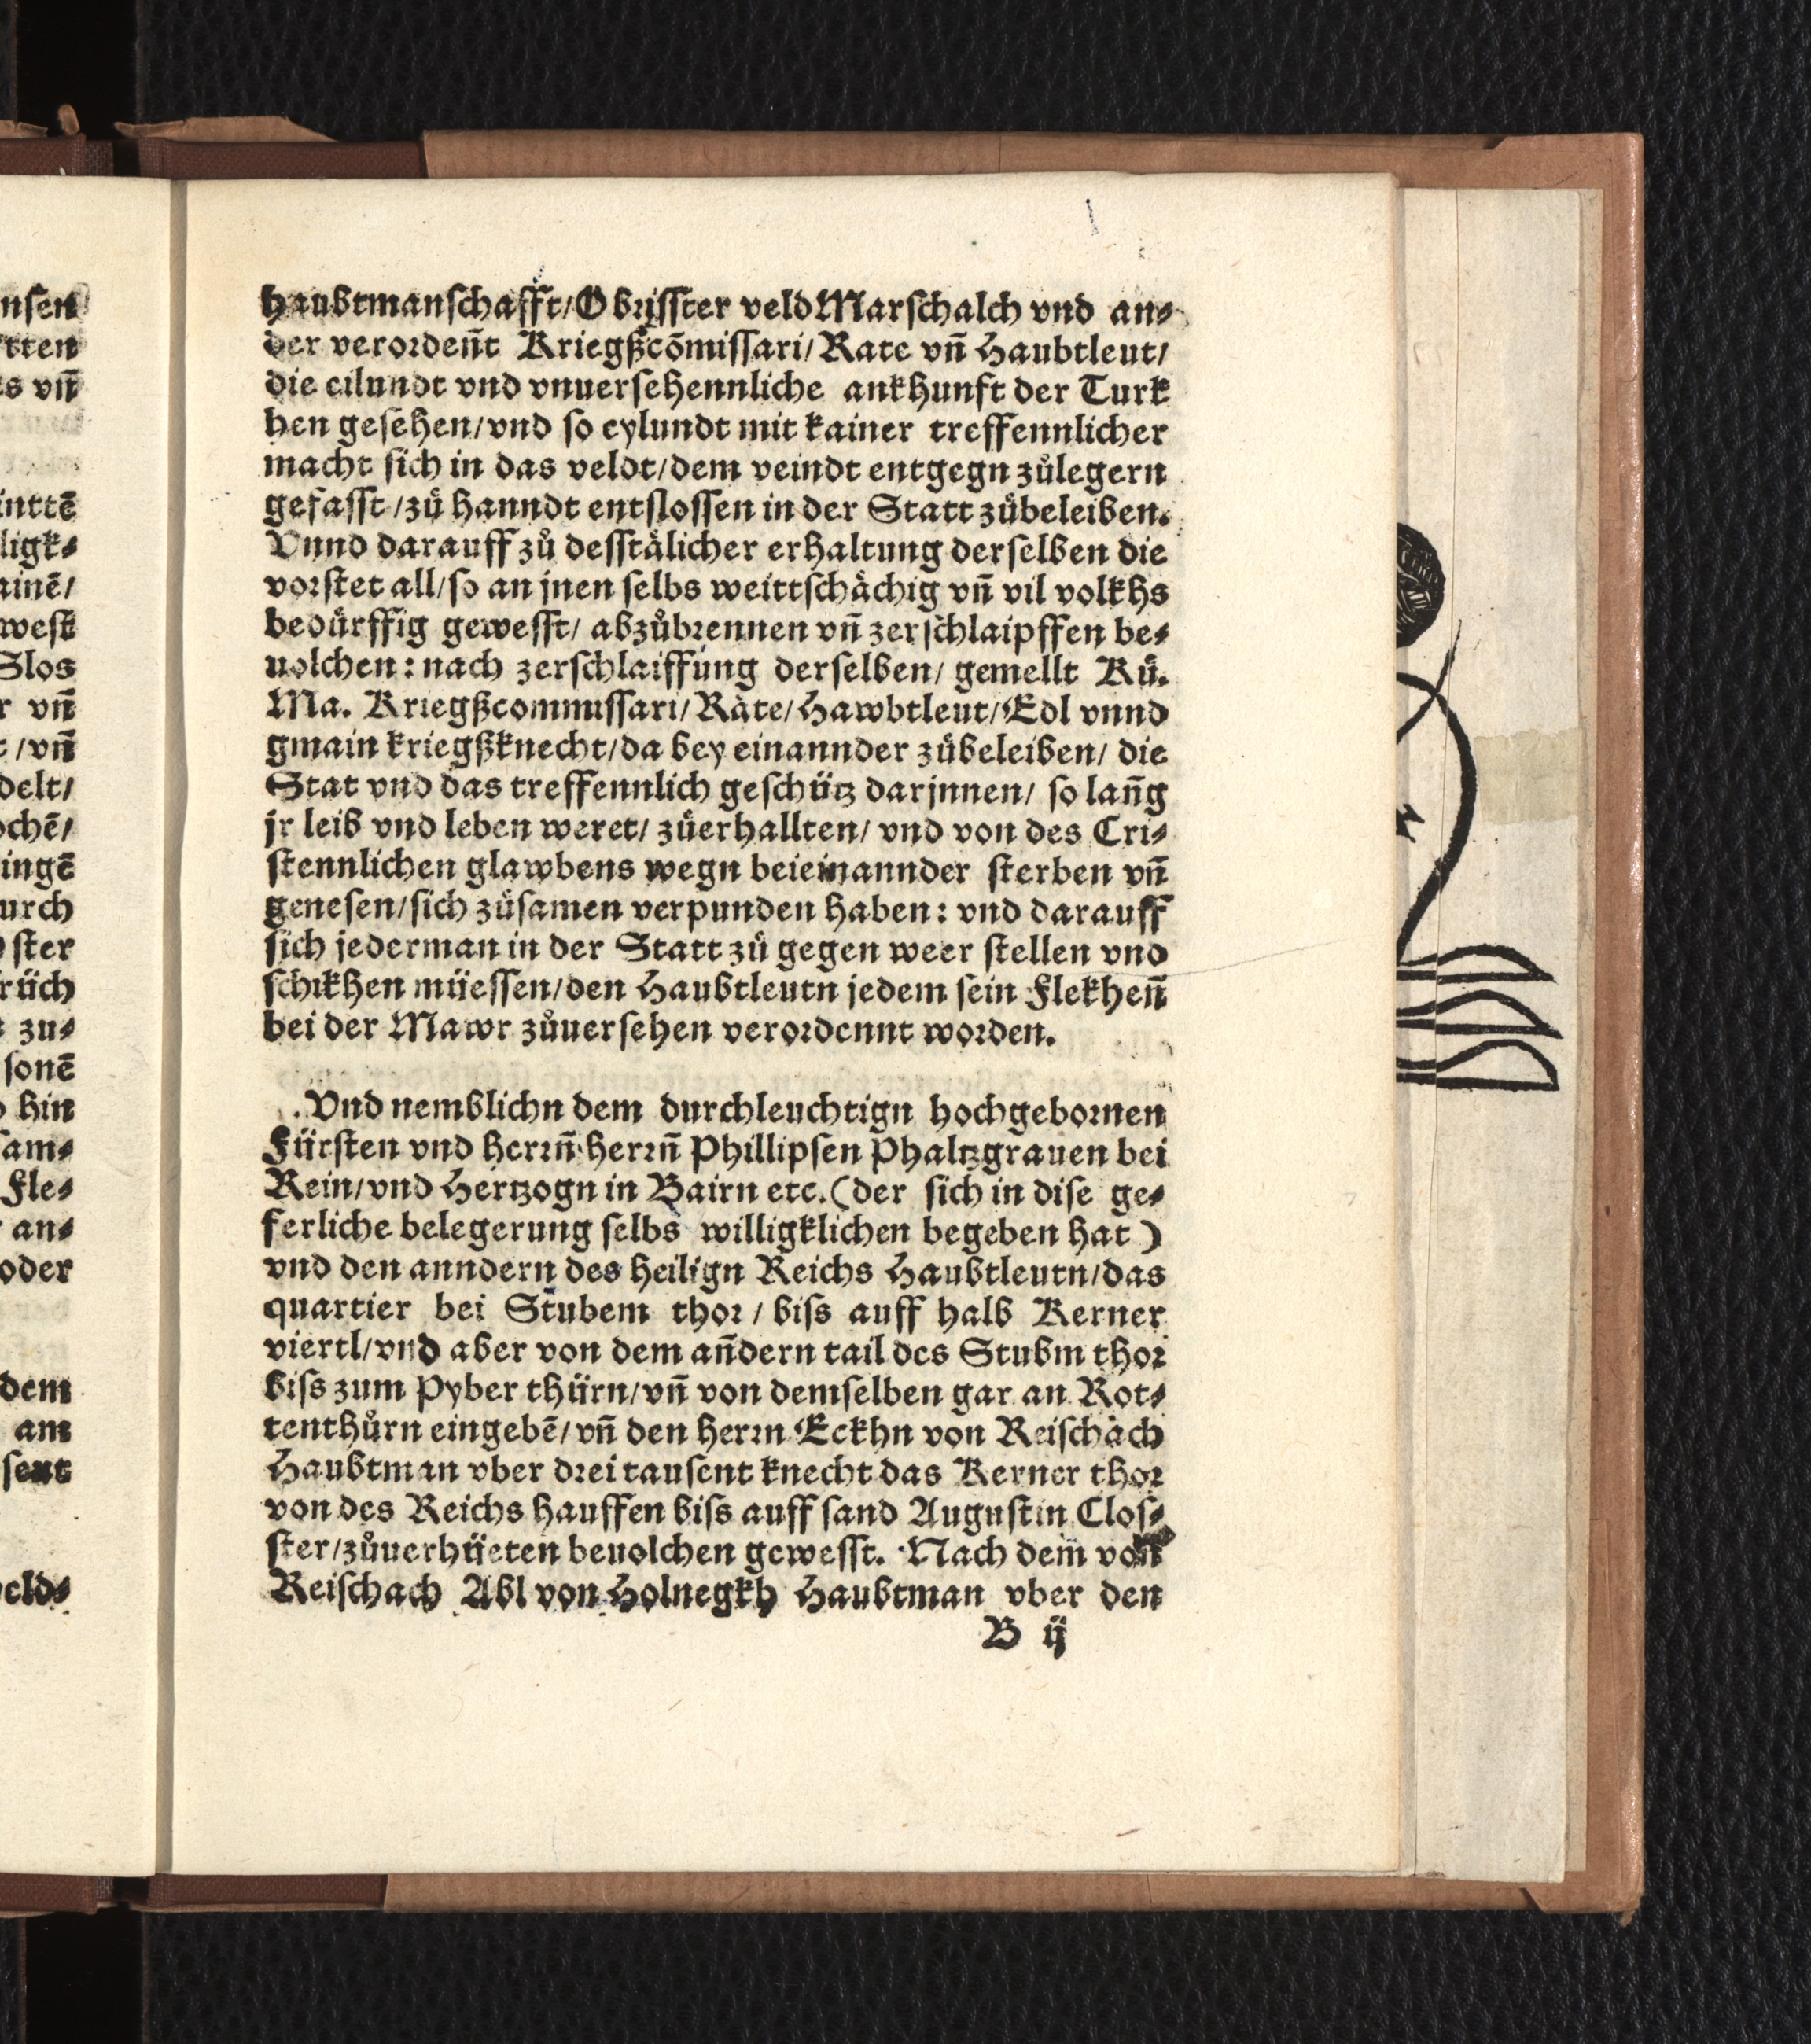 haubtmanschafft/Obrisster veld Marschalch vnd an⸗
der verordeñt Kriegßcõmissari/Rate vñ Haubtleut/
die eilundt vnd vnuersehennliche ankhunft der Turk
hen gesehen/vnd so eylundt mit kainer treffennlicher
macht sich in das veldt/dem veindt entgegn zůlegern
gefasst/zů hanndt entslossen in der Statt zůbeleiben.
Vnnd darauff zů desstälicher erhaltung derselben die
vorstet all/so an jnen selbs weittschächig vñ vil volkhs
bedürffig gewesst/ abzůbrennen vñ zerschlaipffen be⸗
uolchen: nach zerschlaiffung derselben/ gemellt Kü.
Ma. Kriegßcommissari/Räte/Hawbtleut/Edl vnnd
gmain kriegßknecht/da bey einannder zůbeleiben/ die
Stat vnd das treffennlich geschütz darjnnen/ so lañg
jr leib vnd leben weret/ zůerhallten/ vnd von des Cri⸗
stennlichen glawbens wegn beieinannder sterben vñ
genesen/sich zůsamen verpunden haben: vnd darauff
sich jederman in der Statt zů gegen weer stellen vnd
schikhen müessen/den Haubtleutn jedem sein Flekheñ
bei der Mawr zůuersehen verordennt worden.

Vnd nemblichn dem durchleuchtign hochgebornen
Fürsten vnd herrñ herrñ Phillipsen Phaltzgrauen bei
Rein/vnd Hertzogn in Bairn etc.(der sich in dise ge⸗
ferliche belegerung selbs willigklichen begeben hat)
vnd den anndern des heilign Reichs Haubtleutn/das
quartier bei Stubem thor / biss auff halb Kerner
viertl/vnd aber von dem añdern tail des Stubm thor
biss zum Pyber thürn/vñ von demselben gar an Rot⸗
tenthůrn eingebẽ/vñ den herrn Eckhn von Reischäch
Haubtman vber drei tausent knecht das Kerner thor
von des Reichs hauffen biss auff sand Augustin Clos⸗
ster/zůuerhüeten beuolchen gewesst. Nach dem von
Reischach Abl von Holnegkh Haubtman vber den
B ij